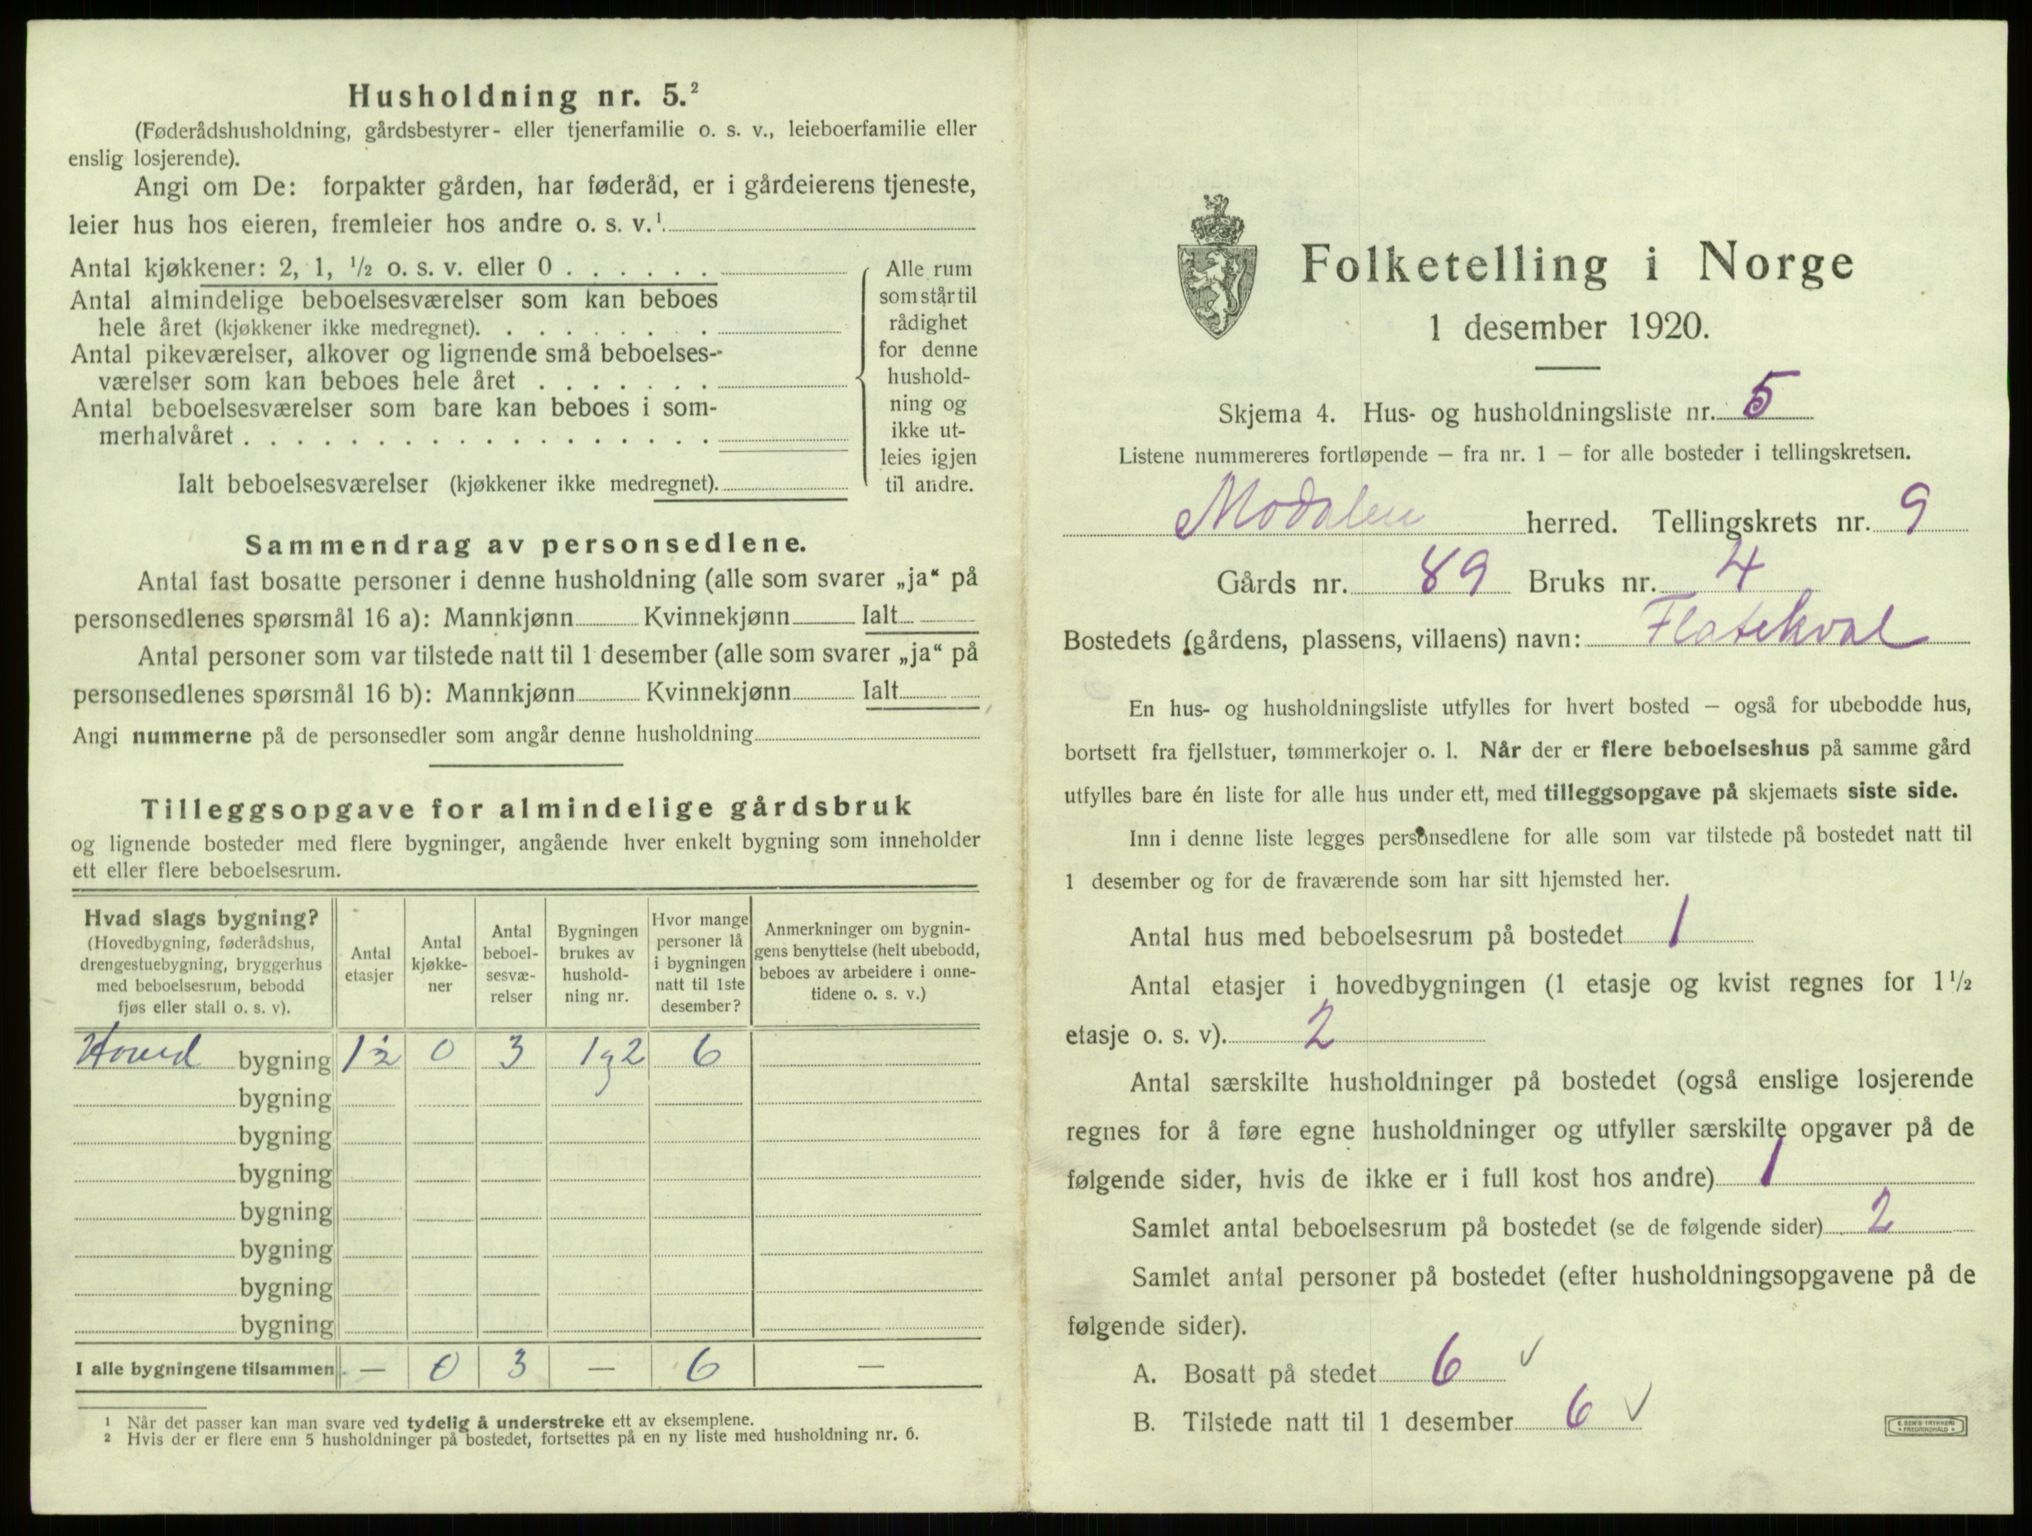 Husholdning nr. 5.²
(Føderådshusholdning, gårdsbestyrer- eller tjenerfamilie o. s. v., leieboerfamilie eller
enslig losjerende).
Angi om De: forpakter gården, har føderåd, er i gårdeierens tjeneste,
leier hus hos eieren, fremleier hos andre o. s. v.¹
Antal kjøkkener: 2, 1, ½ o. s. v. eller 0 . . . . . .
Antal almindelige beboelsesværelser som kan beboes
hele året (kjøkkener ikke medregnet). . . . . . . .
Antal pikeværelser, alkover og lignende små beboelses-
værelser som kan beboes hele året . . . . . . .
Antal beboelsesværelser som bare kan beboes i som-
merhalvåret . . . . . . . . . . . . . . . . . .
Ialt beboelsesværelser (kjøkkener ikke medregnet).
Alle rum
som står til
rådighet
for denne
hushold-
ning og
ikke ut-
leies igjen
til andre.
Sammendrag av personsedlene.
Antal fast bosatte personer i denne husholdning (alle som svarer „ja“ på
personsedlenes spørsmål 16 a): Mannkjønn Kvinnekjønn Ialt
Antal personer som var tilstede natt til 1 desember (alle som svarer „ja“ på
personsedlenes spørsmål 16 b): Mannkjønn Kvinnekjønn Ialt
Angi nummerne på de personsedler som angår denne husholdning
Tilleggsopgave for almindelige gårdsbruk
og lignende bosteder med flere bygninger, angående hver enkelt bygning som inneholder
ett eller flere beboelsesrum.
Hvad slags bygning?
(Hovedbygning, føderådshus,
drengestuebygning, bryggerhus
med beboelsesrum, bebodd
fjøs eller stall o. s. v).
Antal
etasjer
Antal
kjøkke-
ner
Antal
beboel-
sesvæ-
relser
Bygningen
brukes av
hushold-
ning nr.
Hvor mange
personer lå
i bygningen
natt til 1ste
desember?
Anmerkninger om bygnin-
gens benyttelse (helt ubebodd,
beboes av arbeidere i onne-
tidene o. s. v.)
Hoved bygning 1½ 0 3 1 g 2 6
bygning
bygning
bygning
bygning
bygning
bygning
bygning
I alle bygningene tilsammen — 0 3 — 6 —
¹ Når det passer kan man svare ved tydelig å understreke ett av eksemplene.
² Hvis der er flere enn 5 husholdninger på bostedet, fortsettes på en ny liste med husholdning nr. 6.
Folketelling i Norge
1 desember 1920.
Skjema 4. Hus- og husholdningsliste nr. 5
Listene nummereres fortløpende — fra nr. 1 — for alle bosteder i tellingskretsen.
Modalen herred. Tellingskrets nr. 9
Gårds nr. 89 Bruks nr. 4
Bostedets (gårdens, plassens, villaens) navn: Flatekval
En hus- og husholdningsliste utfylles for hvert bosted — også for ubebodde hus,
bortsett fra fjellstuer, tømmerkojer o. l. Når der er flere beboelseshus på samme gård
utfylles bare én liste for alle hus under ett, med tilleggsopgave på skjemaets siste side.
Inn i denne liste legges personsedlene for alle som var tilstede på bostedet natt til
1 desember og for de fraværende som har sitt hjemsted her.
Antal hus med beboelsesrum på bostedet 1
Antal etasjer i hovedbygningen (1 etasje og kvist regnes for 1½
etasje o. s. v). 2
Antal særskilte husholdninger på bostedet (også enslige losjerende
regnes for å føre egne husholdninger og utfyller særskilte opgaver på de
følgende sider, hvis de ikke er i full kost hos andre) 1
Samlet antal beboelsesrum på bostedet (se de følgende sider) 2
Samlet antal personer på bostedet (efter husholdningsopgavene på de
følgende sider).
A. Bosatt på stedet 6 ✓
B. Tilstede natt til 1 desember 6 ✓